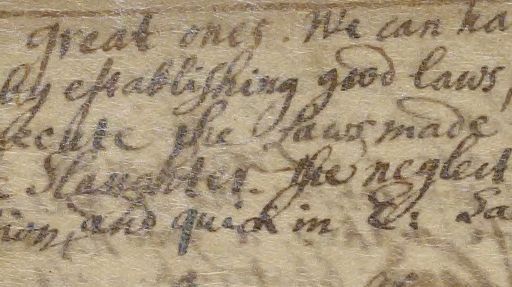 great ones. We can ha
by establishing good laws,
xecute the Laws made
Slaughter. the neglect
tion, and quick in E: La